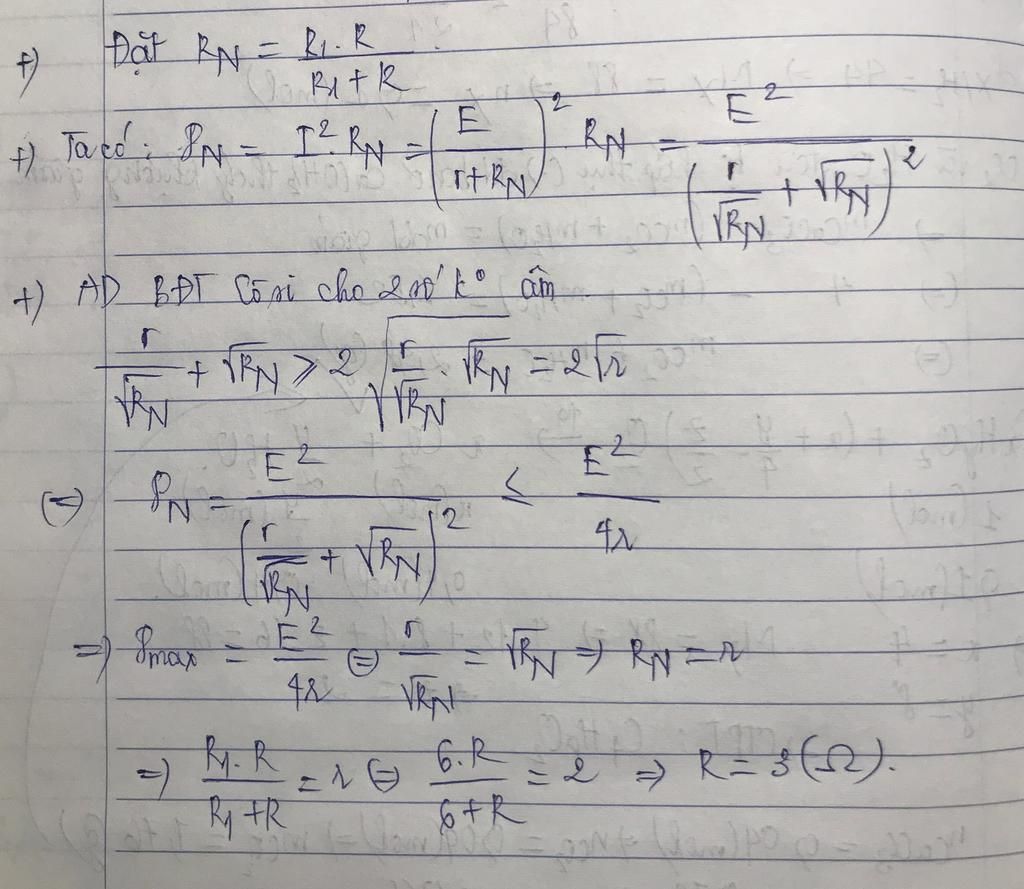 +) Đặt R_N = \frac{R_1 . R}{R_1 + R}
+) Ta có : P_N = I^2 . R_N = \left(\frac{E}{r + R_N}\right)^2 R_N = \frac{E^2}{\left(\frac{r}{\sqrt{R_N}} + \sqrt{R_N}\right)^2}
+) AD BĐT Cô si cho 2 số k° âm
\frac{r}{\sqrt{R_N}} + \sqrt{R_N} ≥ 2\sqrt{\frac{r}{\sqrt{R_N}} . \sqrt{R_N}} = 2\sqrt{r}
(=) P_N = \frac{E^2}{\left(\frac{r}{\sqrt{R_N}} + \sqrt{R_N}\right)^2} ≤ \frac{E^2}{4r}
=) P_{max} = \frac{E^2}{4r} (=) \frac{r}{\sqrt{R_N}} = \sqrt{R_N} => R_N = r
=) \frac{R_1 . R}{R_1 + R} = r (=) \frac{6 . R}{6 + R} = 2 => R = 3 (Ω).